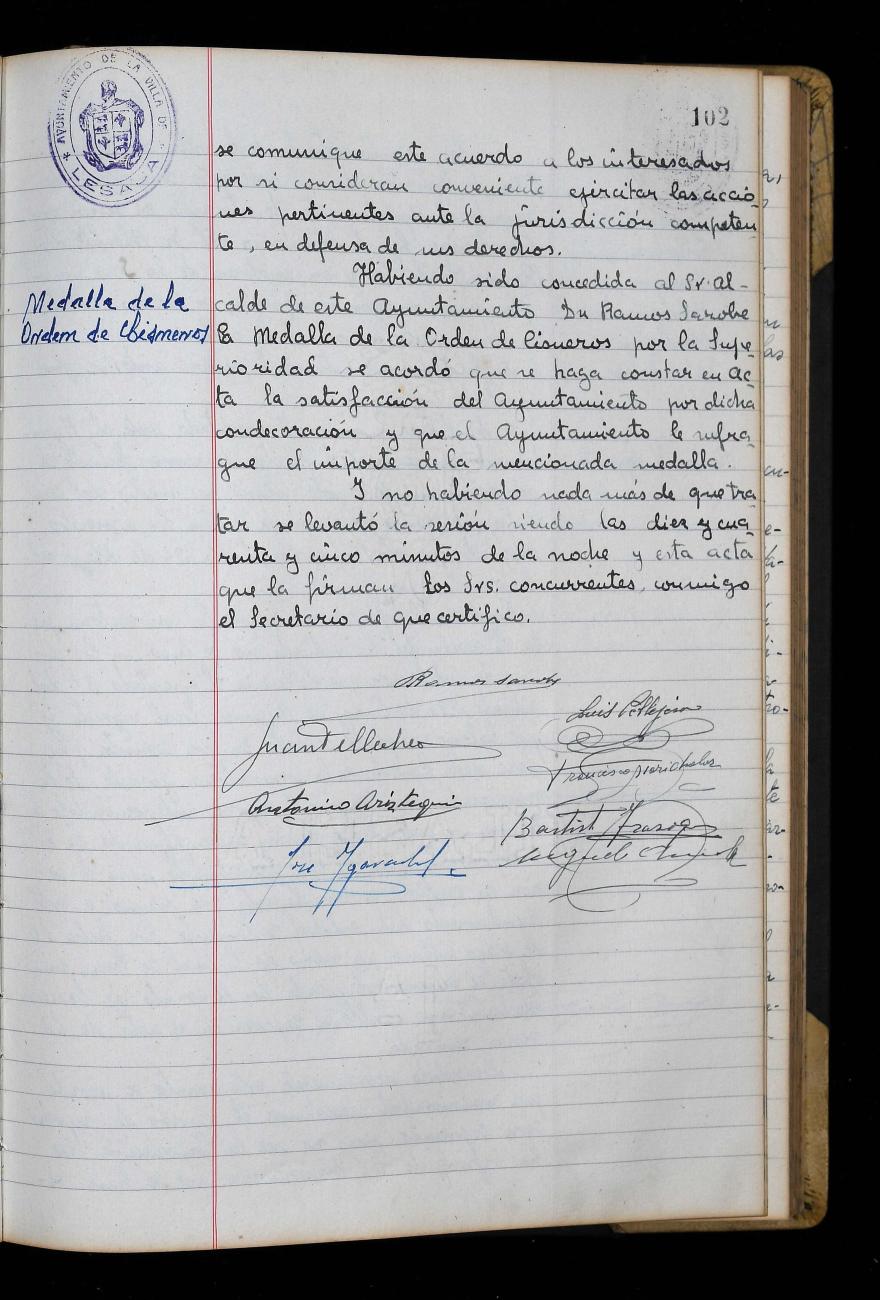 AYUNTAMIENTO DE LA VILLA DE
LESACA
102
se comunique este acuerdo a los interesados
por si consideran conveniente ejercitar las accio-
nes pertinentes ante la jurisdicción competen
te, en defensa de sus derechos.
Medalla de la
Orden de Cisneros
Habiendo sido concedida al Sr. Al-
calde de este Ayuntamiento Dn Ramos Sarobe
la Medalla de la Orden de Cisneros por la Supe-
rioridad se acordó que se haga constar en ac-
ta la satisfacción del Ayuntamiento por dicha
condecoración y que el Ayuntamiento le sufra-
gue el importe de la mencionada medalla.
I no habiendo nada más de que tra-
tar se levantó la sesión siendo las diez y cua-
renta y cinco minutos de la noche y esta acta
que la firman los Srs. concurrentes, conmigo
el Secretario de que certifico.
Ramos Sarobe
Luis
Juan Tellechea
Francisco
Antonino Ariztegui
Bautista
José
Miguel